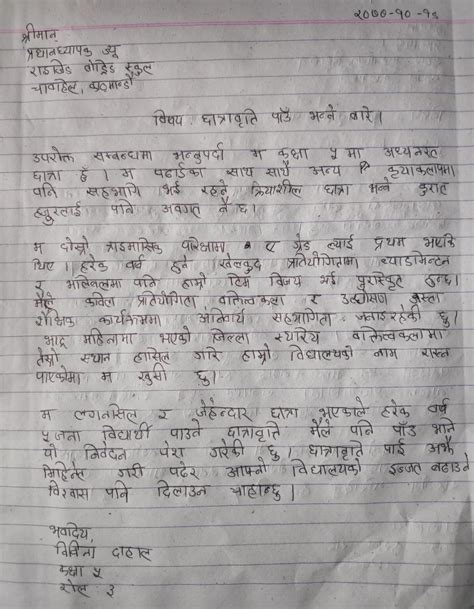 २०७७-१०-१८
श्रीमान
प्रधानध्यापक ज्यू
राइजिङ गोल्डेन स्कुल
चावहिल, काठमान्डौ
विषय: छात्रावृति पाउँ भन्ने बारे।
उपरोक्त सम्बन्धमा भन्नुपर्दा म कक्षा ५ मा अध्यनरत
छात्रा हुँ । म पढाईका साथ साथै अन्य क्रियाकलापमा
पनि सहभागि भई रहने क्रियाशील छात्रा भन्ने कुरात
हजुरलाई पनि अवगत नै छ।
म दोस्रो त्राइमासिक परिक्षामा ए ग्रेड ल्याई प्रथम भएकि
थिए । हरेक वर्ष हुने खेलकुद प्रतियोगितामा ब्याडमिन्टन
र भलिबलमा पनि हाम्रो टिम विजय भई पुरस्कृत हुन्छ।
मैले कविता प्रतियोगिता, वक्तित्वकला र उद्घोषण जस्ता
शैक्षिक कार्यक्रममा अनिवार्य सहभागिता जनाइरहेकी छु।
भाद्र महिनामा भएको जिल्ला स्तरिय वक्तित्वकलामा
तेस्रो स्थान हासिल गरि हाम्रो विद्यालयको नाम राख्न
पाएकोमा म खुसी छु।
म लगनसिल र जेहेन्दार छात्रा भएकाले हरेक वर्ष
५ जना विद्यार्थी पाउने छात्रावृति मैले पनि पाउँ भनि
यो निवेदन पेश गरेकी छु। छात्रावृति पाई अझै
मिहिनेत गरी पढेर आफ्नो विद्यालयको इज्जत बढाउने
विश्वास पनि दिलाउन चाहान्छु।
भवदिय,
दाहाल
कक्षा ५
रोल : ३